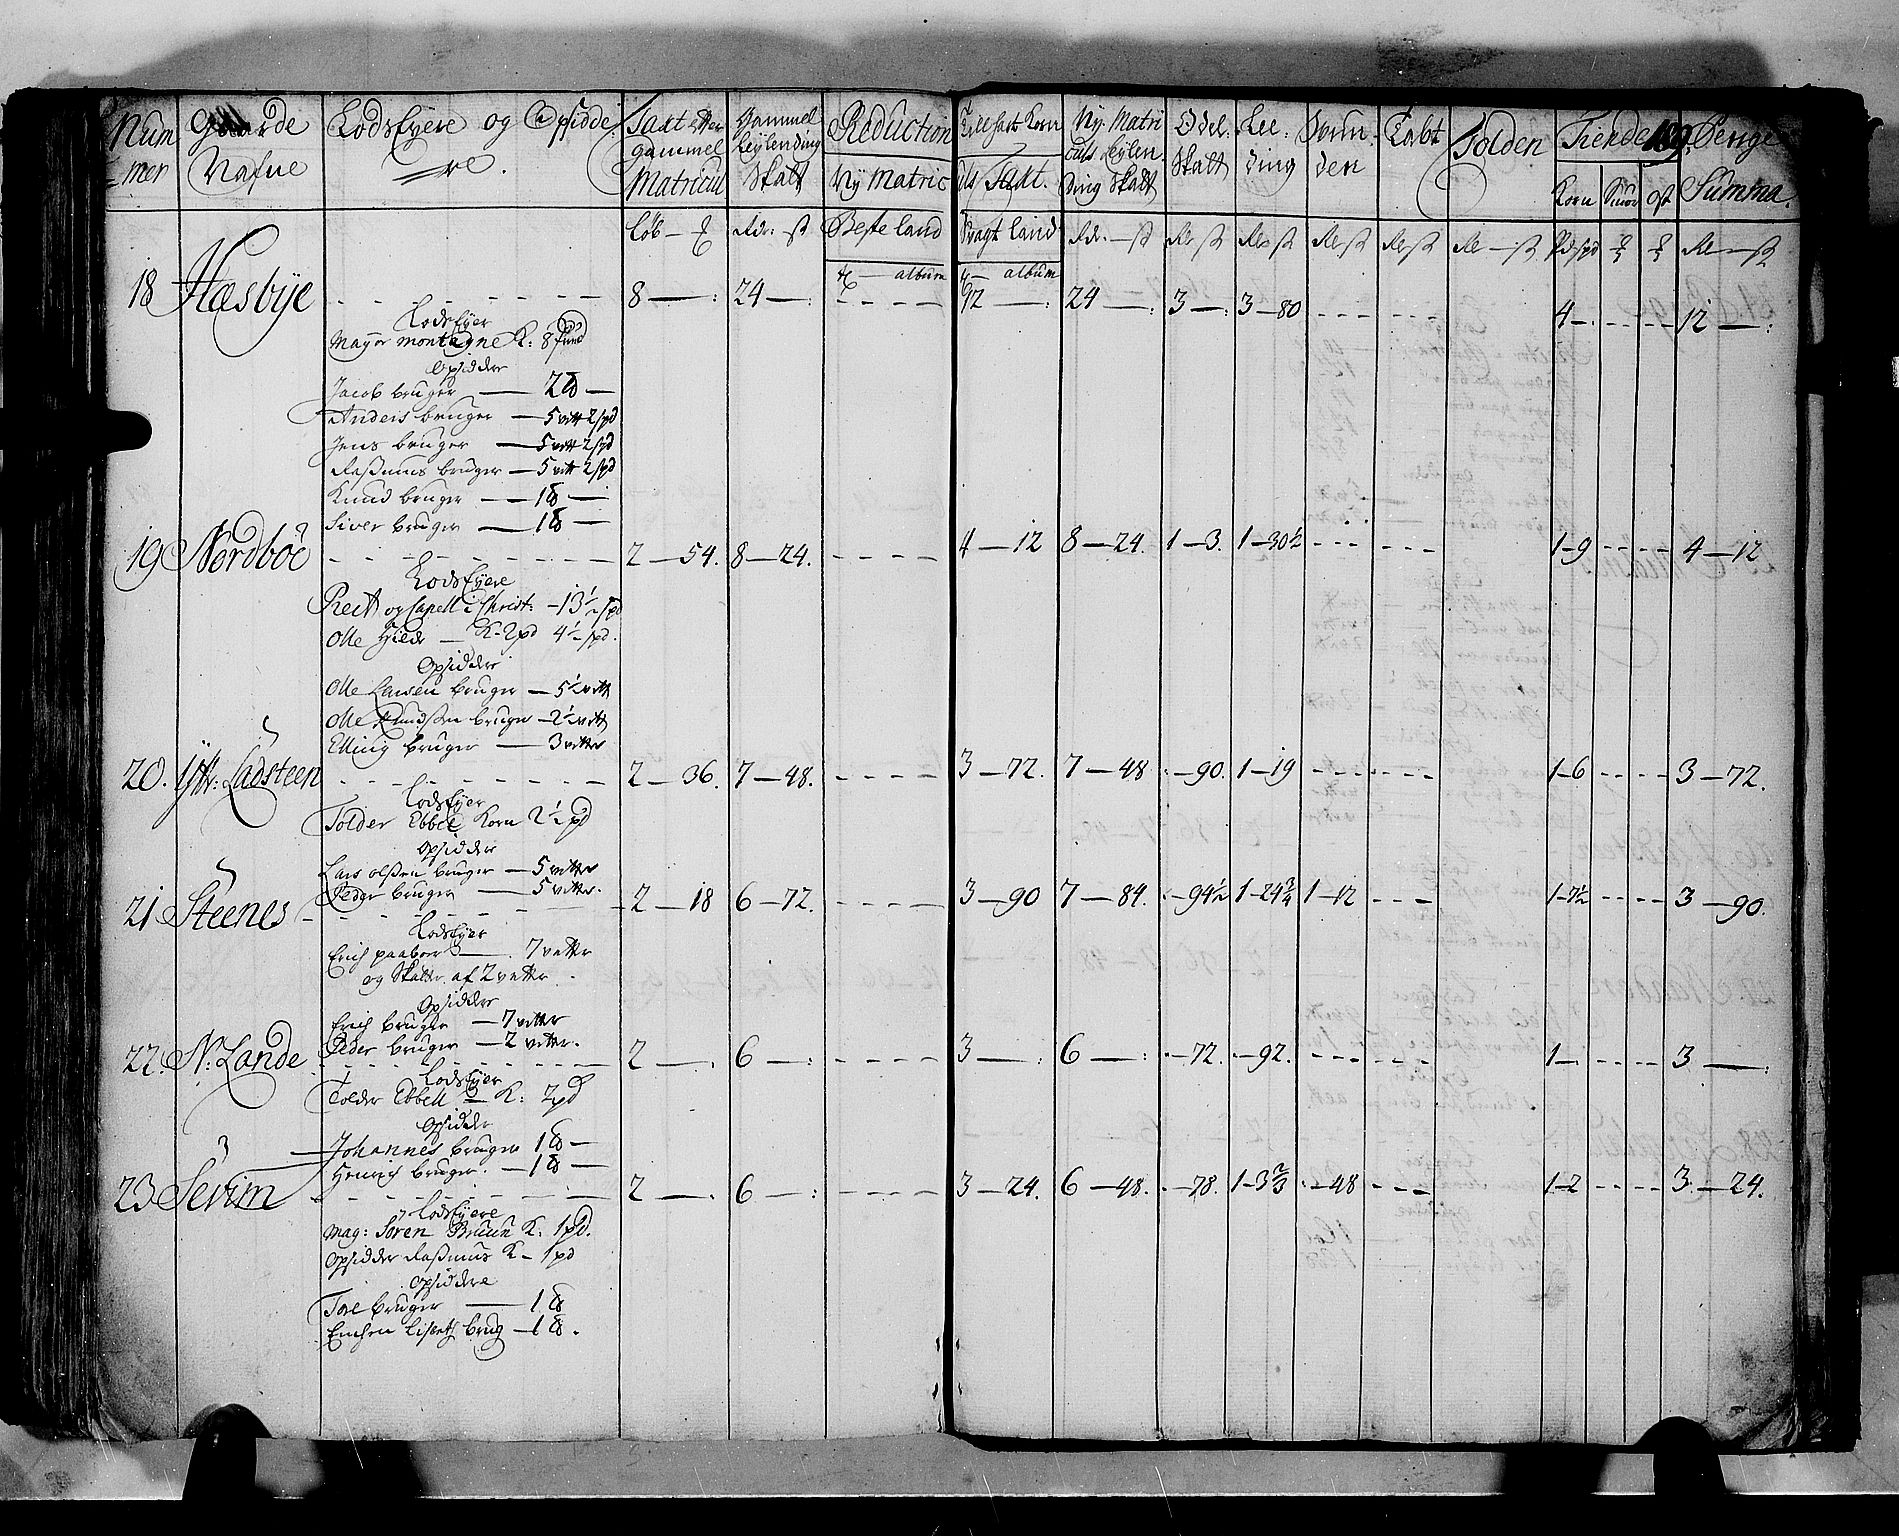 Num mer | Gaarde Nafne | Lodseyere og Opsidde re. | Taxt efter gammel Matricul | Gammel Leylending Skatt | Reduction Ny Matric | Korn Taxt. | Ny Matri culs Leylen ding Skatt | Odel Skatt | Lee ding | den | Tabt | Tolden | Tiende Korn Smør Ost | 189. Penge Summa.
Løb | Rdr: ß | Beste land | Svagt land | Rdr. ß | Rdr ß | Rdr ß | Rdr ß | Rdr ß | Rd ß | Pd spd | Rd ß
album | album
18 Hæsbÿe | 8 —: | 24 —: | - - - - | 92 —: | 24 — | 3 —: | 3 — 80 | - - - | - - - | 4 —. | - - - - | 12 —:
Lodseÿer
Mayor montagne K: 8 Pund
Opsidder
Jacob bruger —
Anders bruger — 5 vett 2 spd
Jens bruger — 5 vett 2 spd
Rasmus bruger — 5 vett 2 spd
Knud bruger — 1
Siver bruger — 1
19 Nordböe | 2 — 54. | 8 — 24. | - - - - | 4 — 12 | 8 — 24. | 1 — 3. | 1 — 30½ | - - - | - - - | 1 — 9 | - - - - | 4 — 12
Lodseÿere
Rect og Capell i Christ: — 13½ spd
Olle Hilde — K - 2 pd 4½ spd.
Opsidder
Olle Larsen bruger — 5½ vett
Olle Knudsen bruger — 2½ vett
Elling bruger — 3 vetter
20. Ytr: Ladsteen | 2 — 36. | 7 — 48. | - - - - | 3 — 72. | 7 — 48 | — 90. | 1 — 19 | - - - | - - - | 1 — 6 | - - - - | 3 — 72.
Lodseÿer
Tolder Ebbel Korn 2½ pd
Opsidder
Lars olsen bruger — 5 vetter
Peder bruger — 5 vetter.
21 Steenes | 2 — 18 | 6 — 72. | - - - - | 3 — 90 | 7 — 84. | — 94½ | 1 — 24¾ | 1 — 12 | - - - | 1 — 7½ | - - - - | 3 — 90.
Lodseÿer
Erich paaboer — 7 vetter
og Skatter af 2 vetter.
Opsidder
Erich bruger — 7 vetter
Peder bruger — 2 vetter.
22. N: Lande | 2 —. | 6 —: | - - - - | 3 —: | 6 —: | — 72. | — 92. | - - - | - - - | 1 — | - - - - | 3 —
Lodseÿer
Tolder Ebbell — K: 2 pd
Opsidder
Johannes bruger 1
Henrich bruger. — 1
23 Sevim | 2 —. | 6 —: | - - - - | 3 — 24. | 6 — 48. | — 78. | 1 — 3⅔ | — 48 | - - - | 1 — 2 | - - - - | 3. — 24.
Lodseÿere
Mag: Søren Bruun K: 1 pd.
Opsidder Rasmus K — 1 pd
Opsiddere
Tore bruger — 1
Lisbeth brug — 1